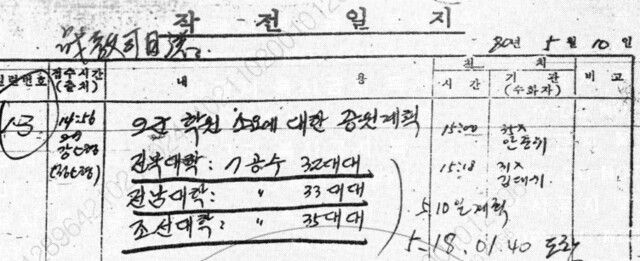 작 전 일 지
戰敎司日誌
80년 5월 10일
일련번호 접수시간 (출처) 내 용 조 치 시 간 기 관 (수화자) 비 고
14:56 2군 학원 소요에 대한 증원계획 15:00
전북대학: 7공수 32대대 15:18 김대위
전남대학: 〃 33대대
5.10일 계획
조선대학: 〃 35대대
5.18. 01.40 도착